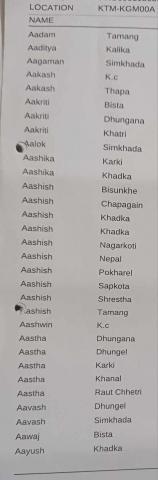 LOCATION KTM-KGM00A
NAME
Aadam Tamang
Aaditya Kalika
Aagaman Simkhada
Aakash K.c
Aakash Thapa
Aakriti Bista
Aakriti Dhungana
Aakriti Khatri
Aalok Simkhada
Aashika Karki
Aashika Khadka
Aashish Bisunkhe
Aashish Chapagain
Aashish Khadka
Aashish Khadka
Aashish Nagarkoti
Aashish Nepal
Aashish Pokharel
Aashish Sapkota
Aashish Shrestha
Aashish Tamang
Aashwin K.c
Aastha Dhungana
Aastha Dhungel
Aastha Karki
Aastha Khanal
Aastha Raut Chhetri
Aavash Dhungel
Aavash Simkhada
Aawaj Bista
Aayush Khadka